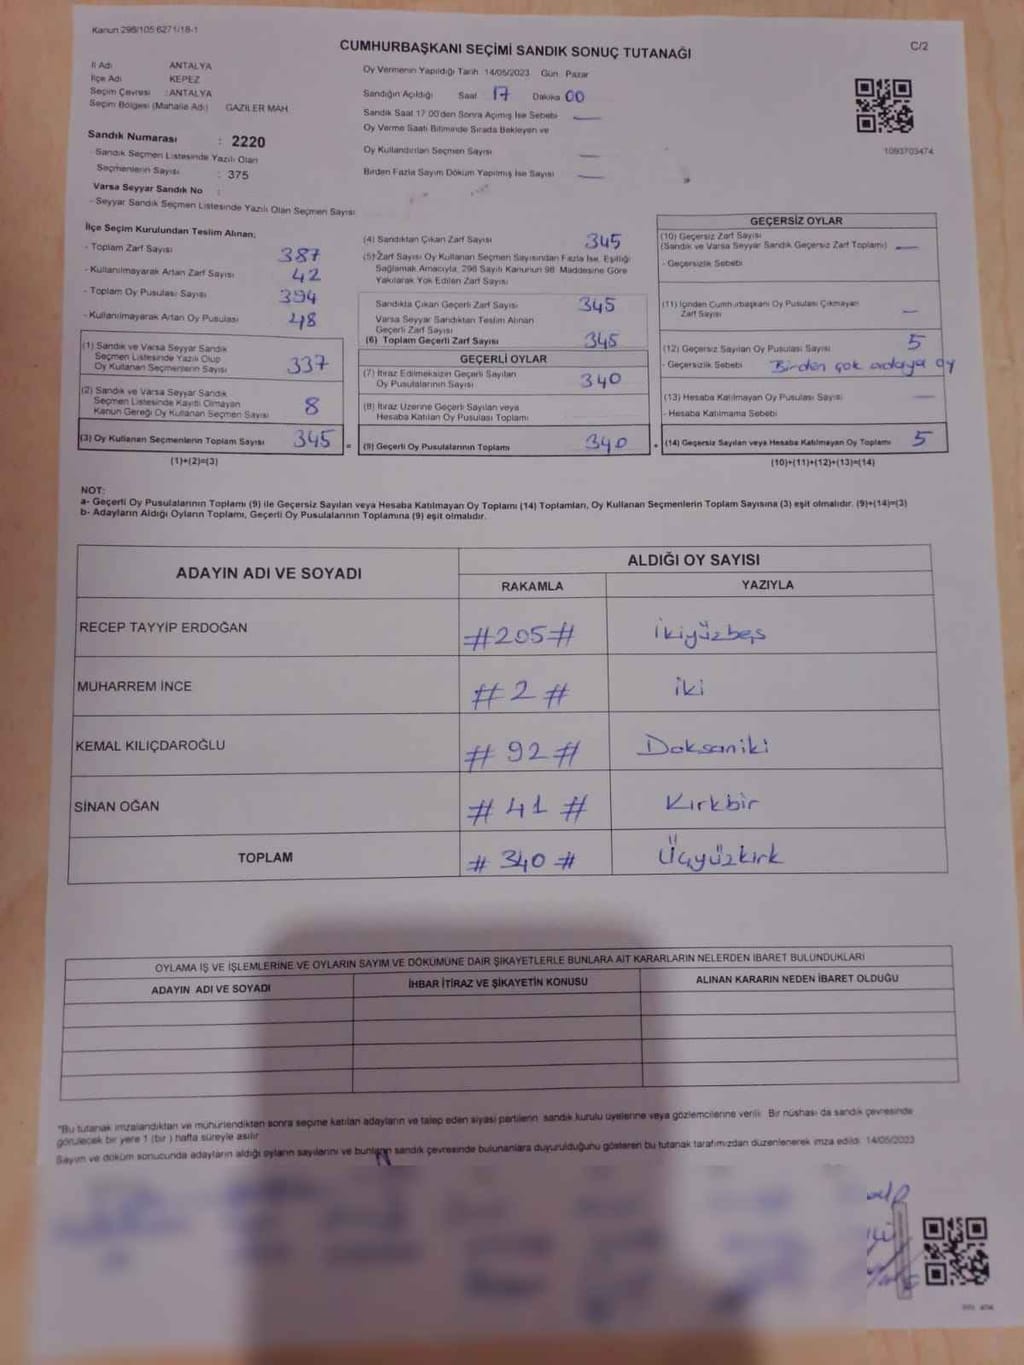 Kanun 298/105 6271/18-1
CUMHURBAŞKANI SEÇİMİ SANDIK SONUÇ TUTANAĞI
C/2
İl Adı ANTALYA
İlçe Adı KEPEZ
Seçim Çevresi : ANTALYA
Seçim Bölgesi (Mahalle Adı) GAZİLER MAH.
Oy Vermenin Yapıldığı Tarih 14/05/2023 Gün Pazar
Sandığın Açıldığı Saat 17 Dakika 00
Sandık Saat 17.00'den Sonra Açılmış İse Sebebi —
Oy Verme Saati Bitiminde Sırada Bekleyen ve
Oy Kullandırılan Seçmen Sayısı —
Birden Fazla Sayım Döküm Yapılmış İse Sayısı —
1093703474
Sandık Numarası : 2220
- Sandık Seçmen Listesinde Yazılı Olan
Seçmenlerin Sayısı : 375
Varsa Seyyar Sandık No :
- Seyyar Sandık Seçmen Listesinde Yazılı Olan Seçmen Sayısı
İlçe Seçim Kurulundan Teslim Alınan;
- Toplam Zarf Sayısı 387
- Kullanılmayarak Artan Zarf Sayısı 42
- Toplam Oy Pusulası Sayısı 394
- Kullanılmayarak Artan Oy Pusulası 48
(1) Sandık ve Varsa Seyyar Sandık
Seçmen Listesinde Yazılı Olup
Oy Kullanan Seçmenlerin Sayısı 337
(2) Sandık ve Varsa Seyyar Sandık
Seçmen Listesinde Kayıtlı Olmayan
Kanun Gereği Oy Kullanan Seçmen Sayısı 8
(3) Oy Kullanan Seçmenlerin Toplam Sayısı 345 =
(1)+(2)=(3)
(4) Sandıktan Çıkan Zarf Sayısı 345
(5) Zarf Sayısı Oy Kullanan Seçmen Sayısından Fazla İse, Eşitliği
Sağlamak Amacıyla, 298 Sayılı Kanunun 98. Maddesine Göre
Yakılarak Yok Edilen Zarf Sayısı
Sandıkta Çıkan Geçerli Zarf Sayısı 345
Varsa Seyyar Sandıktan Teslim Alınan
Geçerli Zarf Sayısı
(6) Toplam Geçerli Zarf Sayısı 345
GEÇERLİ OYLAR
(7) İtiraz Edilmeksizin Geçerli Sayılan
Oy Pusulalarının Sayısı 340
(8) İtiraz Üzerine Geçerli Sayılan veya
Hesaba Katılan Oy Pusulası Toplamı
(9) Geçerli Oy Pusulalarının Toplamı 340 +
GEÇERSİZ OYLAR
(10) Geçersiz Zarf Sayısı
(Sandık ve Varsa Seyyar Sandık Geçersiz Zarf Toplamı) —
- Geçersizlik Sebebi
(11) İçinden Cumhurbaşkanı Oy Pusulası Çıkmayan
Zarf Sayısı —
(12) Geçersiz Sayılan Oy Pusulası Sayısı 5
- Geçersizlik Sebebi Birden çok adaya oy
(13) Hesaba Katılmayan Oy Pusulası Sayısı —
- Hesaba Katılmama Sebebi
(14) Geçersiz Sayılan veya Hesaba Katılmayan Oy Toplamı 5
(10)+(11)+(12)+(13)=(14)
NOT:
a- Geçerli Oy Pusulalarının Toplamı (9) ile Geçersiz Sayılan veya Hesaba Katılmayan Oy Toplamı (14) Toplamları, Oy Kullanan Seçmenlerin Toplam Sayısına (3) eşit olmalıdır. (9)+(14)=(3)
b- Adayların Aldığı Oyların Toplamı, Geçerli Oy Pusulalarının Toplamına (9) eşit olmalıdır.
ADAYIN ADI VE SOYADI
ALDIĞI OY SAYISI
RAKAMLA YAZIYLA
RECEP TAYYİP ERDOĞAN #205# ikiyüzbeş
MUHARREM İNCE #2# iki
KEMAL KILIÇDAROĞLU #92# Doksaniki
SİNAN OĞAN #41# Kırkbir
TOPLAM #340# Üçyüzkırk
OYLAMA İŞ VE İŞLEMLERİNE VE OYLARIN SAYIM VE DÖKÜMÜNE DAİR ŞİKAYETLERLE BUNLARA AİT KARARLARIN NELERDEN İBARET BULUNDUKLARI
ADAYIN ADI VE SOYADI İHBAR İTİRAZ VE ŞİKAYETİN KONUSU ALINAN KARARIN NEDEN İBARET OLDUĞU
"Bu tutanak imzalandıktan ve mühürlendikten sonra seçime katılan adayların ve talep eden siyasi partilerin sandık kurulu üyelerine veya gözlemcilerine verilir. Bir nüshası da sandık çevresinde
görülecek bir yere 1 (bir) hafta süreyle asılır.
Sayım ve döküm sonucunda adayların aldığı oyların sayılarını ve bunların sandık çevresinde bulunanlara duyurulduğunu gösteren bu tutanak tarafımızdan düzenlenerek imza edildi. 14/05/2023